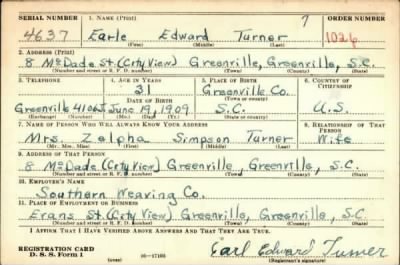 SERIAL NUMBER 1. NAME (Print) ORDER NUMBER
4637 Earle Edward Turner 1026
(First) (Middle) (Last)
2. ADDRESS (Print)
8 McDade St. (City View) Greenville, Greenville, S.C.
(Number and street or R. F. D. number) (Town) (County) (State)
3. TELEPHONE 4. AGE IN YEARS 5. PLACE OF BIRTH 6. COUNTRY OF CITIZENSHIP
31 Greenville Co.
DATE OF BIRTH (Town or county)
Greenville 4106J June 19, 1909 S.C. U.S.
(Exchange) (Number) (Mo.) (Day) (Yr.) (State or country)
7. NAME OF PERSON WHO WILL ALWAYS KNOW YOUR ADDRESS 8. RELATIONSHIP OF THAT PERSON
Mrs. Zelpha Simpson Turner Wife
(Mr., Mrs., Miss) (First) (Middle) (Last)
9. ADDRESS OF THAT PERSON
8 McDade (City View) Greenville, Greenville, S.C.
(Number and street or R. F. D. number) (Town) (County) (State)
10. EMPLOYER'S NAME
Southern Weaving Co.
11. PLACE OF EMPLOYMENT OR BUSINESS
Evans St. (City View) Greenville, Greenville, S.C.
(Number and street or R. F. D. number) (Town) (County) (State)
I AFFIRM THAT I HAVE VERIFIED ABOVE ANSWERS AND THAT THEY ARE TRUE.
REGISTRATION CARD
D. S. S. Form 1 (over) 16—17105
Earl Edward Turner
(Registrant's signature)